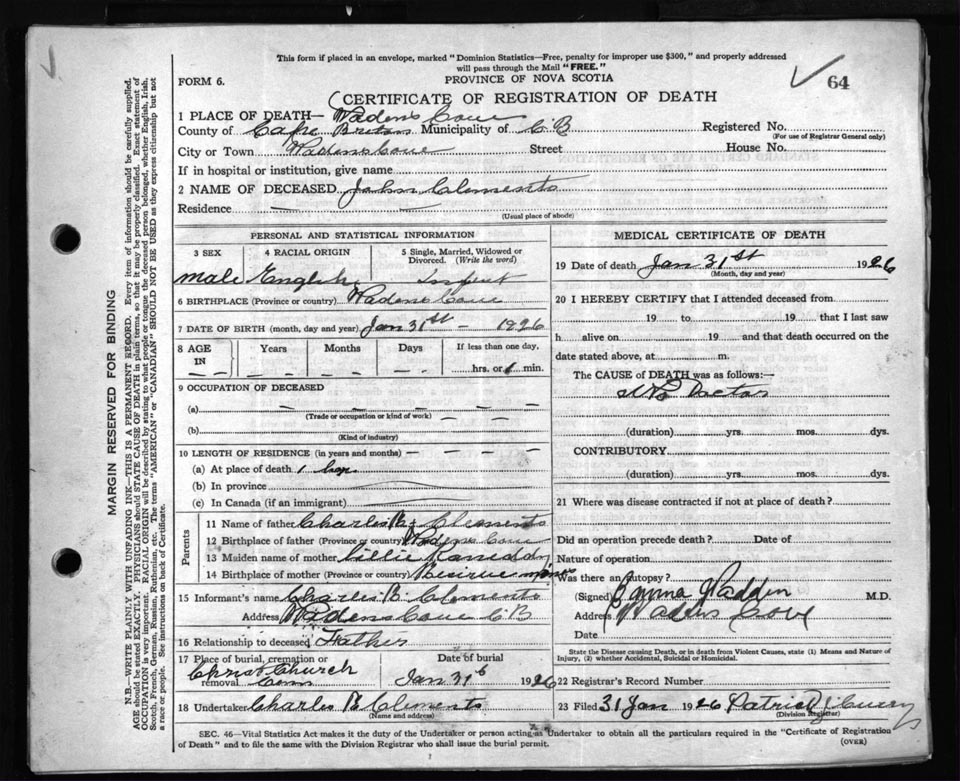 This form if placed in an envelope, marked "Dominion Statistics—Free, penalty for improper use $300," and properly addressed
will pass through the Mail "FREE."
FORM 6.
PROVINCE OF NOVA SCOTIA
64
CERTIFICATE OF REGISTRATION OF DEATH
1 PLACE OF DEATH— Wadens Cove
County of Cape Breton Municipality of C B Registered No.
(For use of Registrar General only)
City or Town Wadens Cove Street House No.
If in hospital or institution, give name
2 NAME OF DECEASED John Clements
Residence
(Usual place of abode)
PERSONAL AND STATISTICAL INFORMATION
3 SEX 4 RACIAL ORIGIN 5 Single, Married, Widowed or
Divorced. (Write the word)
Male English Infant
6 BIRTHPLACE (Province or country) Wadens Cove
7 DATE OF BIRTH (month, day and year) Jan 31st - 1926
8 AGE IN Years Months Days If less than one day,
hrs. or 1 min.
9 OCCUPATION OF DECEASED
(a)
(Trade or occupation or kind of work)
(b)
(Kind of industry)
10 LENGTH OF RESIDENCE (in years and months)
(a) At place of death 1
(b) In province
(c) In Canada (if an immigrant)
Parents
11 Name of father Charles B. Clements
12 Birthplace of father (Province or country) Wadens Cove
13 Maiden name of mother Lillie
14 Birthplace of mother (Province or country)
15 Informant's name Charles B Clements
Address Wadens Cove C B
16 Relationship to deceased Father
17 Place of burial, cremation or Date of burial
removal Christ Church Cem Jan 31st 1926
18 Undertaker Charles B Clements
(Name and address)
MEDICAL CERTIFICATE OF DEATH
19 Date of death Jan 31st 1926
(Month, day and year)
20 I HEREBY CERTIFY that I attended deceased from
19 to 19 that I last saw
h alive on 19 and that death occurred on the
date stated above, at m.
The CAUSE of DEATH was as follows:—
No Doctor
(duration) yrs. mos. dys.
CONTRIBUTORY
(duration) yrs. mos. dys.
21 Where was disease contracted if not at place of death?
Did an operation precede death? Date of
Nature of operation
Was there an autopsy?
(Signed) Emma Wadden M.D.
Address Waddens Cove
Date
State the Disease causing Death, or in death from Violent Causes, state (1) Means and Nature of
Injury, (2) whether Accidental, Suicidal or Homicidal.
22 Registrar's Record Number
23 Filed 31 Jan 1926 Patric
(Division Registrar)
SEC. 46—Vital Statistics Act makes it the duty of the Undertaker or person acting as Undertaker to obtain all the particulars required in the "Certificate of Registration
of Death" and to file the same with the Division Registrar who shall issue the burial permit.
(OVER)
MARGIN RESERVED FOR BINDING
N.B.—WRITE PLAINLY WITH UNFADING INK—THIS IS A PERMANENT RECORD. Every item of information should be carefully supplied.
AGE should be stated EXACTLY. PHYSICIANS should STATE CAUSE OF DEATH in plain terms, so that it may be properly classified. Exact statement of
OCCUPATION is very important. RACIAL ORIGIN will be described by stating to what people or tongue the deceased person belonged, whether English, Irish,
Scotch, French, German, Russian, Ruthenian, etc. The terms "AMERICAN" or "CANADIAN" SHOULD NOT BE USED as they express citizenship but not
a race or people. See instructions on back of Certificate.